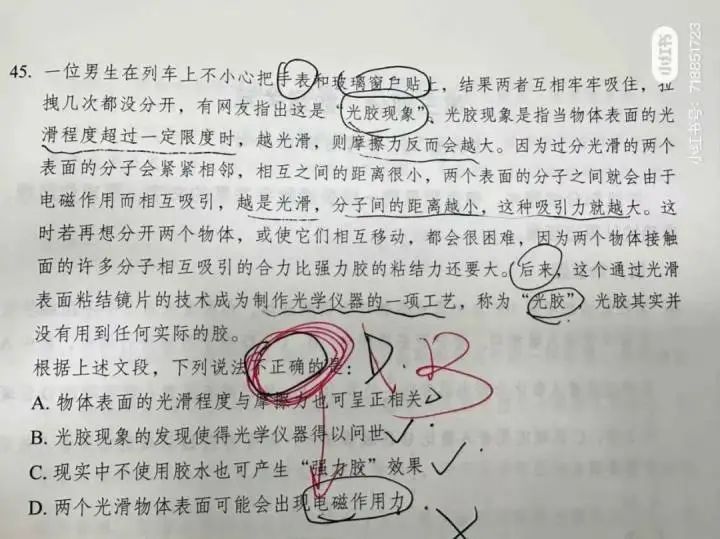 小红书
小红书号：718851723
45. 一位男生在列车上不小心把手表和玻璃窗户贴上，结果两者互相牢牢吸住，拉
拽几次都没分开，有网友指出这是“光胶现象”。光胶现象是指当物体表面的光
滑程度超过一定限度时，越光滑，则摩擦力反而会越大。因为过分光滑的两个
表面的分子会紧紧相邻，相互之间的距离很小，两个表面的分子之间就会由于
电磁作用而相互吸引，越是光滑，分子间的距离越小，这种吸引力就越大。这
时若再想分开两个物体，或使它们相互移动，都会很困难，因为两个物体接触
面的许多分子相互吸引的合力比强力胶的粘结力还要大。后来，这个通过光滑
表面粘结镜片的技术成为制作光学仪器的一项工艺，称为“光胶”，光胶其实并
没有用到任何实际的胶。
根据上述文段，下列说法不正确的是：D B
A. 物体表面的光滑程度与摩擦力也可呈正相关
B. 光胶现象的发现使得光学仪器得以问世
C. 现实中不使用胶水也可产生“强力胶”效果
D. 两个光滑物体表面可能会出现电磁作用力